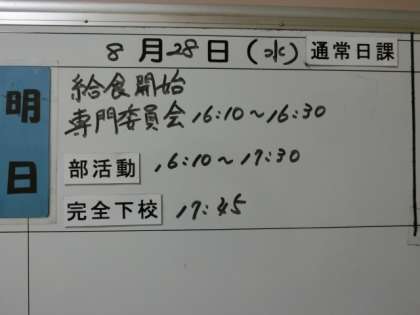 8月28日(水) 通常日課
明日
給食開始
専門委員会 16:10～16:30
部活動 16:10～17:30
完全下校 17:45